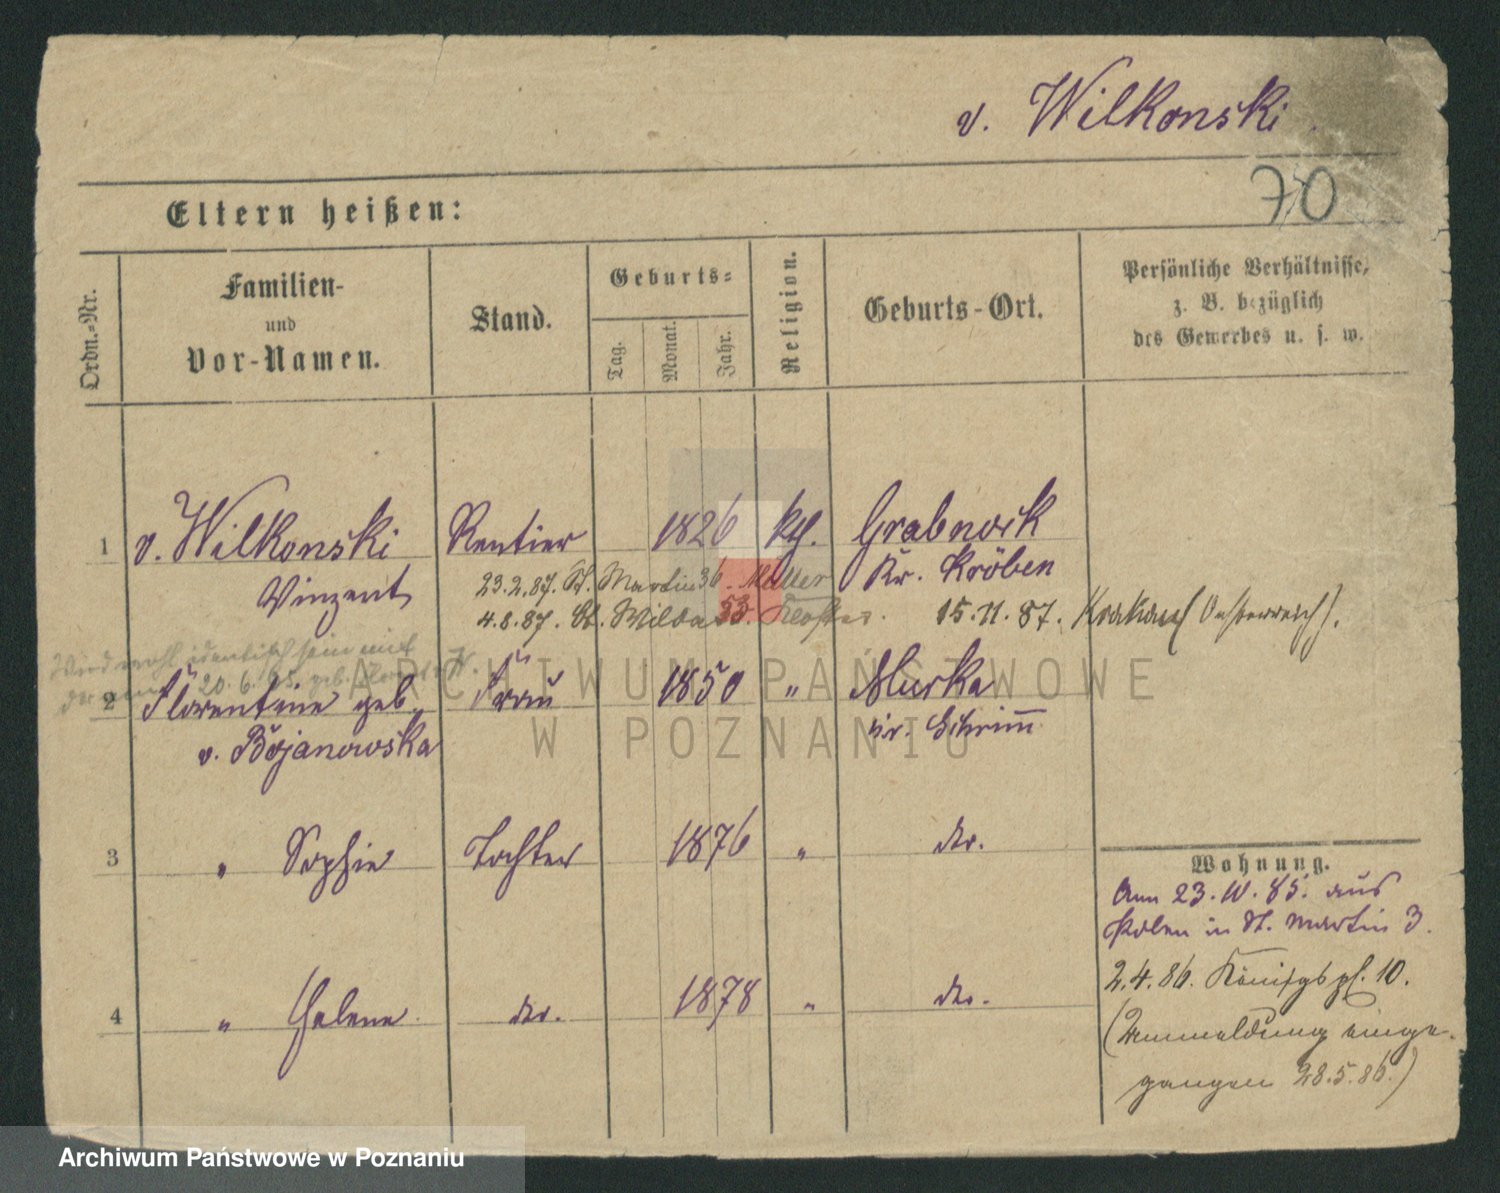 v. Wilkonski
70
Eltern heißen:
Ordn.-Nr.
Familien-
und
Vor-Namen.
Stand.
Geburts-
Tag.
Monat.
Jahr.
Religion.
Geburts-Ort.
Persönliche Verhältnisse,
z. B. bezüglich
des Gewerbes u. s. w.
1 v. Wilkonski Rentier 1826 kth. Grabnock
Vinzent Kr. Kröben
23.2.87. St. Martin 36. Müller
4.8.87. St. Wilda 53. 15.11.87. Krakau (Oesterreich).
Wird wohl identisch sein mit
20.6. geb.
2 Florentine geb. Frau 1850 " Murka
v. Bojanowska Kr. Schrimm
3 " Sophie Tochter 1876 " do.
4 " Helene do. 1878 " do.
Wohnung.
Am 23.IV.85. aus
Polen in St. Martin 3.
2.4.86. Königspl. 10.
(Anmeldung einge-
gangen 28.5.86.)
ARCHIWUM PAŃSTWOWE
W POZNANIU
Archiwum Państwowe w Poznaniu